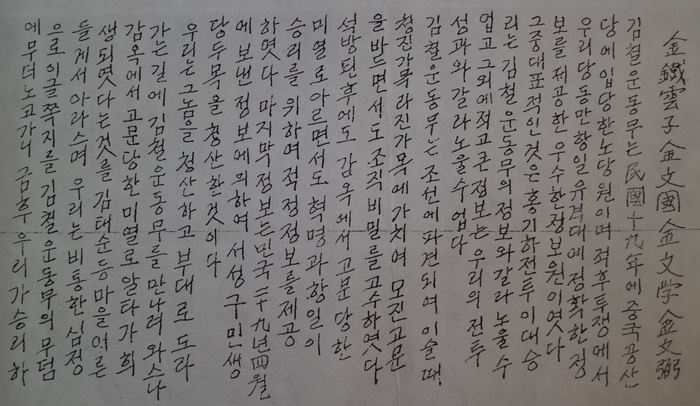 金鐵雲子 金文國 金文学 金文弼
김철운동무는 民國十九年에 중국공산
당에 입당한 노당원이며 적후투쟁에서
우리당동만항일유격대에정확한정
보를 제공한 우수한정보원이엿다
그중대표적인것은 홍기하전투이대승
리는 김철운동무의 정보와 갈라놓을수
업고 그외에적고큰정보는 우리의 전투
성과와 갈라노을수 업다
김철운동무는 조선에파견되여 이술때
청진가목라진가목에 가치여 모진고문
을 바드면서도 조직비밀를 고수하엿다
석방된후에도 감옥에서 고문 당한
미열로 아르면서도 혁명과 항일이
승리를 위하며 적정정보를 제공
하엿다 마지막정보는민국二十九년四월
에 보낸 정보에의하여 서성구민생
당두목을 청산한것이다
우리는 그놈을 청산하고 부대로 도라
가는길에 김철운동무를 만나려 와스나
감옥에서 고문당한 미열로 알타가 희
생되엿다는것를 김태순등마을여른
들게서 아라스며 우리는 비통한 심정
으로 이글쪽지를 김철운동무의 무덤
에무더노고가니 금후 우리가승리하